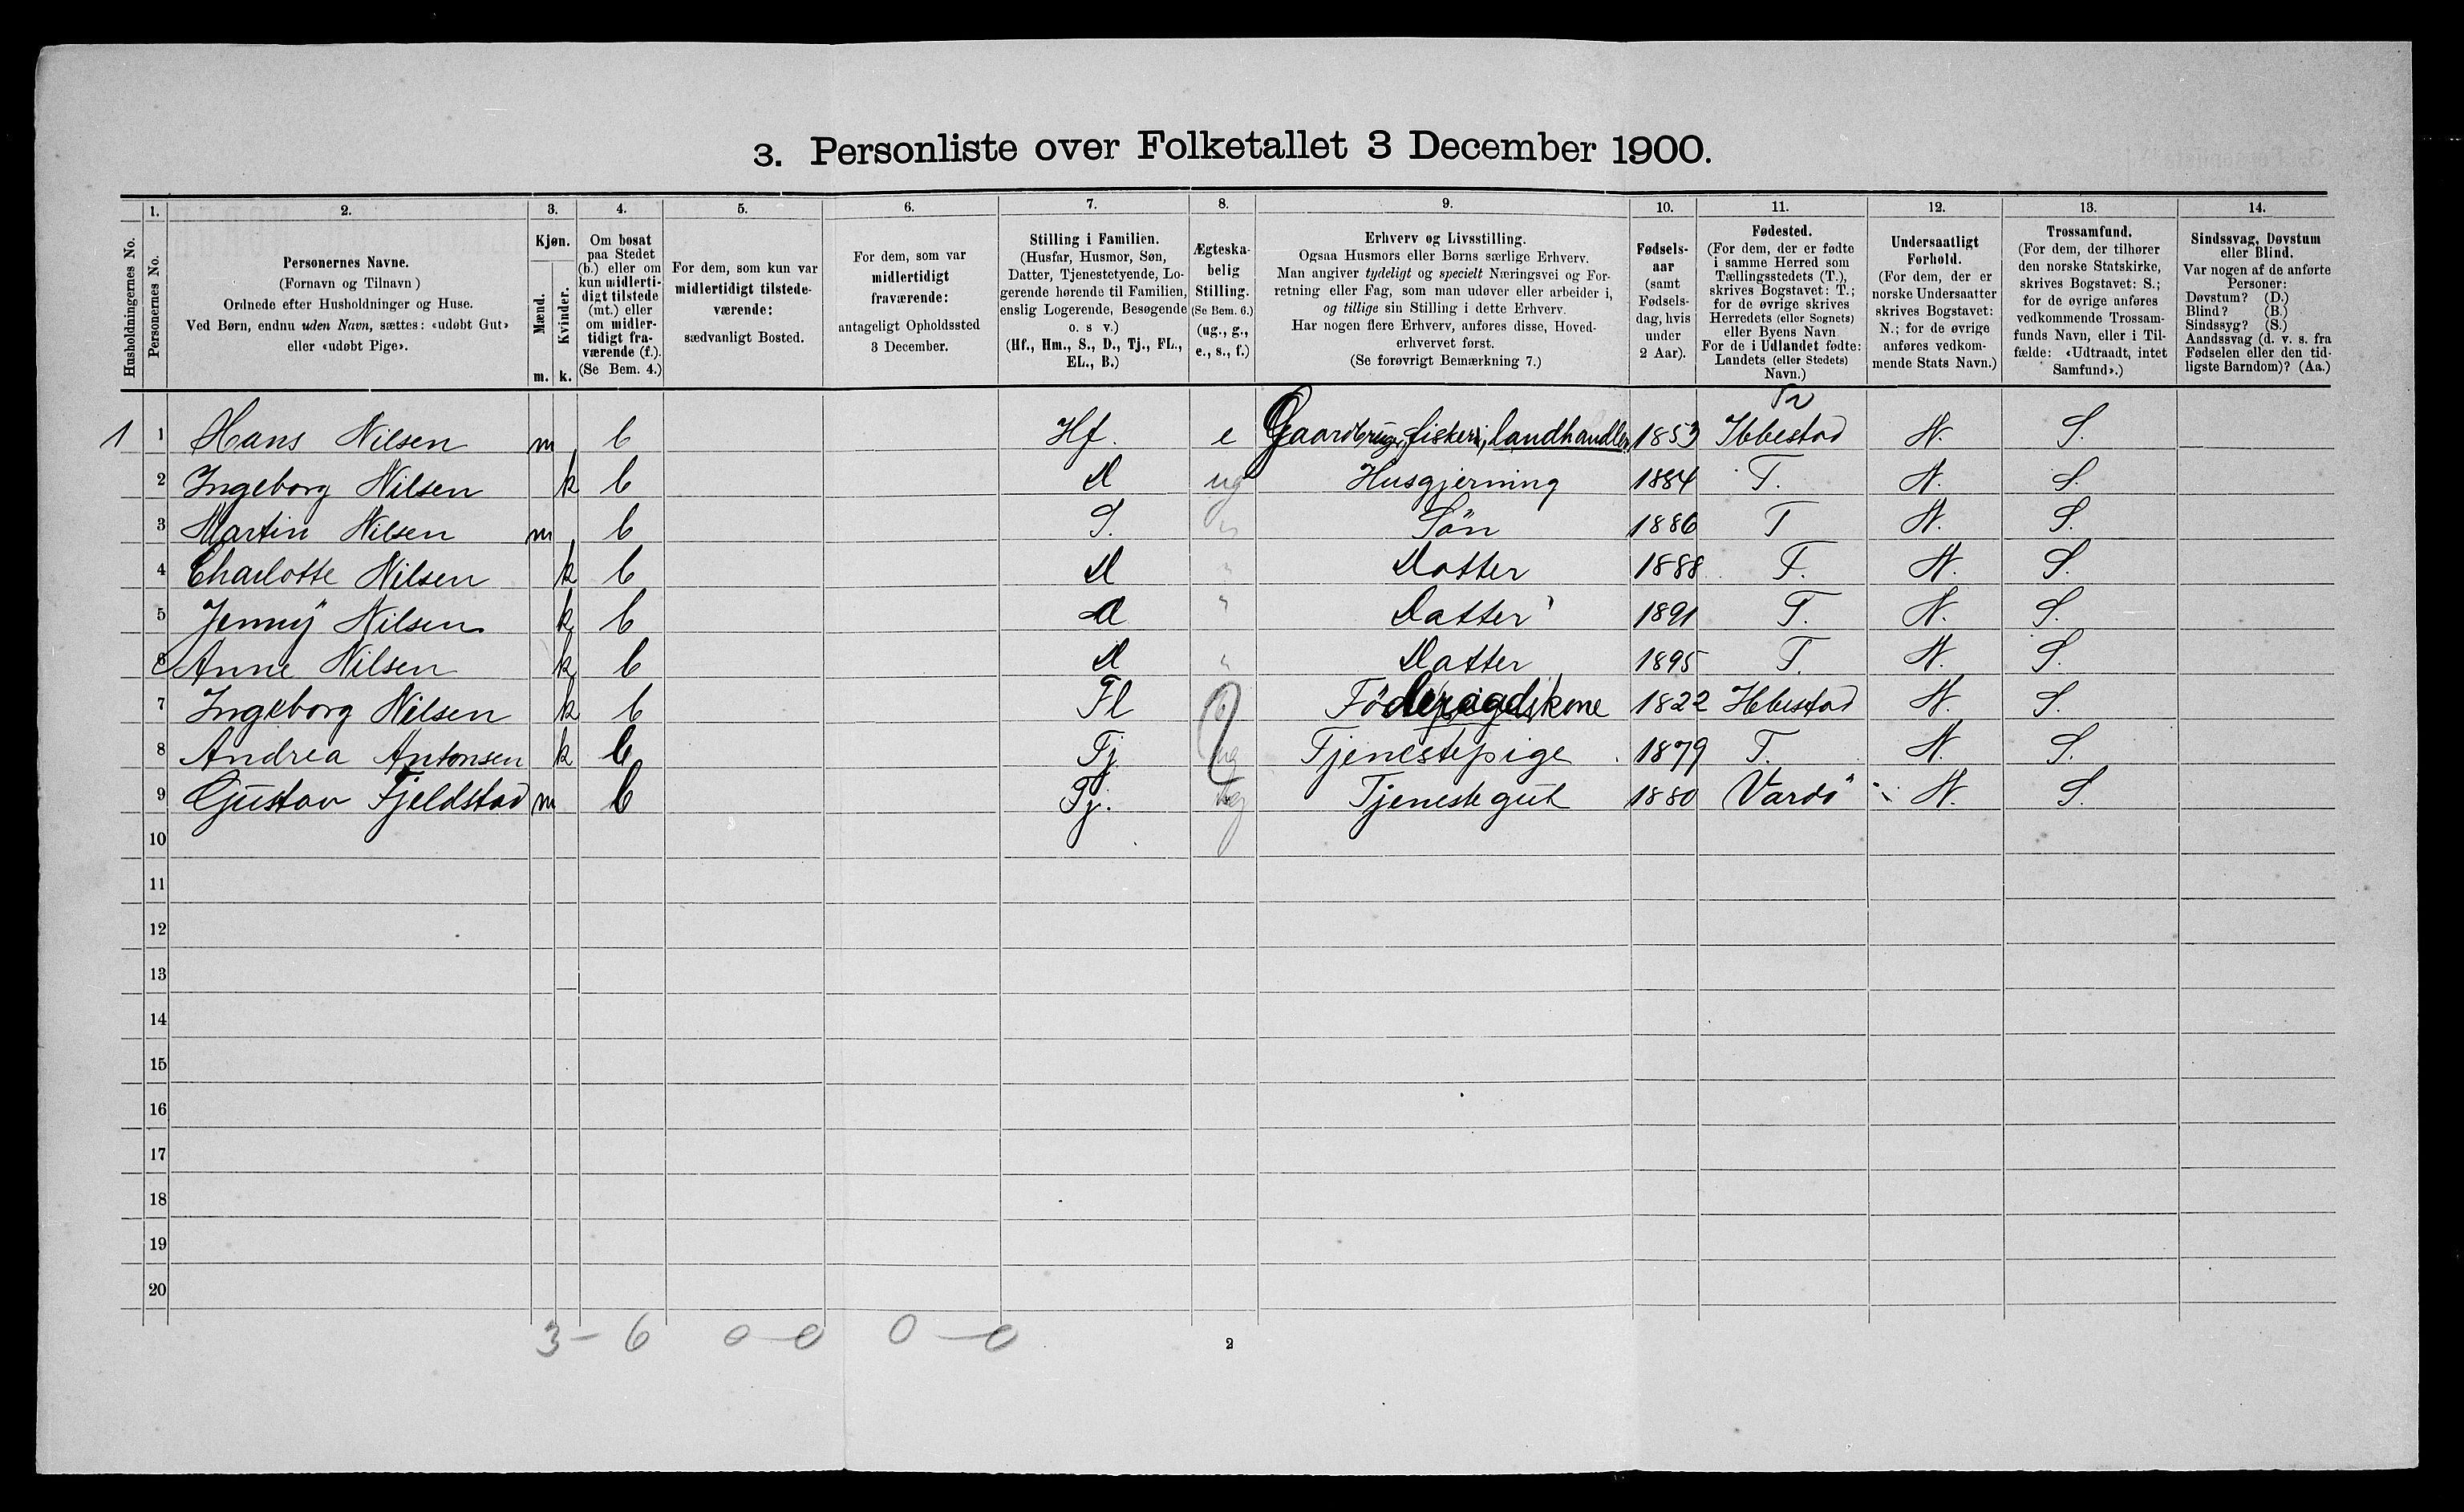 3. Personliste over Folketallet 3 December 1900.
1. 2. 3. 4. 5. 6. 7. 8. 9. 10. 11. 12. 13. 14.
Husholdningernes No.
Personernes No.
Personernes Navne.
(Fornavn og Tilnavn)
Ordnede efter Husholdninger og Huse.
Ved Børn, endnu uden Navn, sættes: «udøbt Gut»
eller «udøbt Pige».
Kjøn.
Mænd.
Kvinder.
m. k.
Om bosat
paa Stedet
(b.) eller om
kun midlerti-
digt tilstede
(mt.) eller
om midler-
tidigt fra-
værende (f.).
(Se Bem. 4.)
For dem, som kun var
midlertidigt tilstede-
værende:
sædvanligt Bosted.
For dem, som var
midlertidigt
fraværende:
antageligt Opholdssted
3 December.
Stilling i Familien.
(Husfar, Husmor, Søn,
Datter, Tjenestetyende, Lo-
gerende hørende til Familien,
enslig Logerende, Besøgende
o. s v.)
(Hf., Hm., S., D., Tj., FL.,
EL., B.)
Ægteska-
belig
Stilling.
(Se Bem. 6.)
(ug., g.,
e., s., f.)
Erhverv og Livsstilling.
Ogsaa Husmors eller Børns særlige Erhverv.
Man angiver tydeligt og specielt Næringsvei og For-
retning eller Fag, som man udøver eller arbeider i,
og tillige sin Stilling i dette Erhverv.
Har nogen flere Erhverv, anføres disse, Hoved-
erhvervet først.
(Se forøvrigt Bemærkning 7.)
Fødsels-
aar
(samt
Fødsels-
dag, hvis
under
2 Aar).
Fødested.
(For dem, der er fødte
i samme Herred som
Tællingsstedets (T.),
skrives Bogstavet: T.;
for de øvrige skrives
Herredets (eller Sognets)
eller Byens Navn
For de i Udlandet fødte:
Landets (eller Stedets)
Navn.)
Undersaatligt
Forhold.
(For dem, der er
norske Undersaatter
skrives Bogstavet:
N.; for de øvrige
anføres vedkom-
mende Stats Navn.)
Trossamfund.
(For dem, der tilhører
den norske Statskirke,
skrives Bogstavet: S.;
for de øvrige anføres
vedkommende Trossam-
funds Navn, eller i Til-
fælde: «Udtraadt, intet
Samfund».)
Sindssvag, Døvstum
eller Blind.
Var nogen af de anførte
Personer:
Døvstum? (D.)
Blind? (B.)
Sindssyg? (S.)
Aandssvag (d. v. s. fra
Fødselen eller den tid-
ligste Barndom)? (Aa.)
Tr
1 1 Hans Nilsen m b Hf. e Gaardbruger, fiskeri, landhandler 1853 Ibbestad N. S.
2 Ingeborg Nilsen k b D ug Husgjerning 1884 T. N. S.
3 Martin Nilsen m b S. " Sön 1886 T N. S.
4 Charlotte Nilsen k b D " Datter 1888 T. N. S.
5 Jenny Nilsen k b D " Datter 1891 T. N. S.
6 Anne Nilsen k b D " Datter 1895 T. N. S.
7 Ingeborg Nilsen k b Fl Föderaadskone 1822 Ibbestad N. S.
8 Andrea Antonsen k b Tj ug Tjenestepige 1879 T. N. S.
9 Gustav Fjeldstad m b Tj. ug Tjenestegut 1880 Vardö N. S.
10
11
12
13
14
15
16
17
18
19
20
3 - 6 0 - 0 0 - 0
2